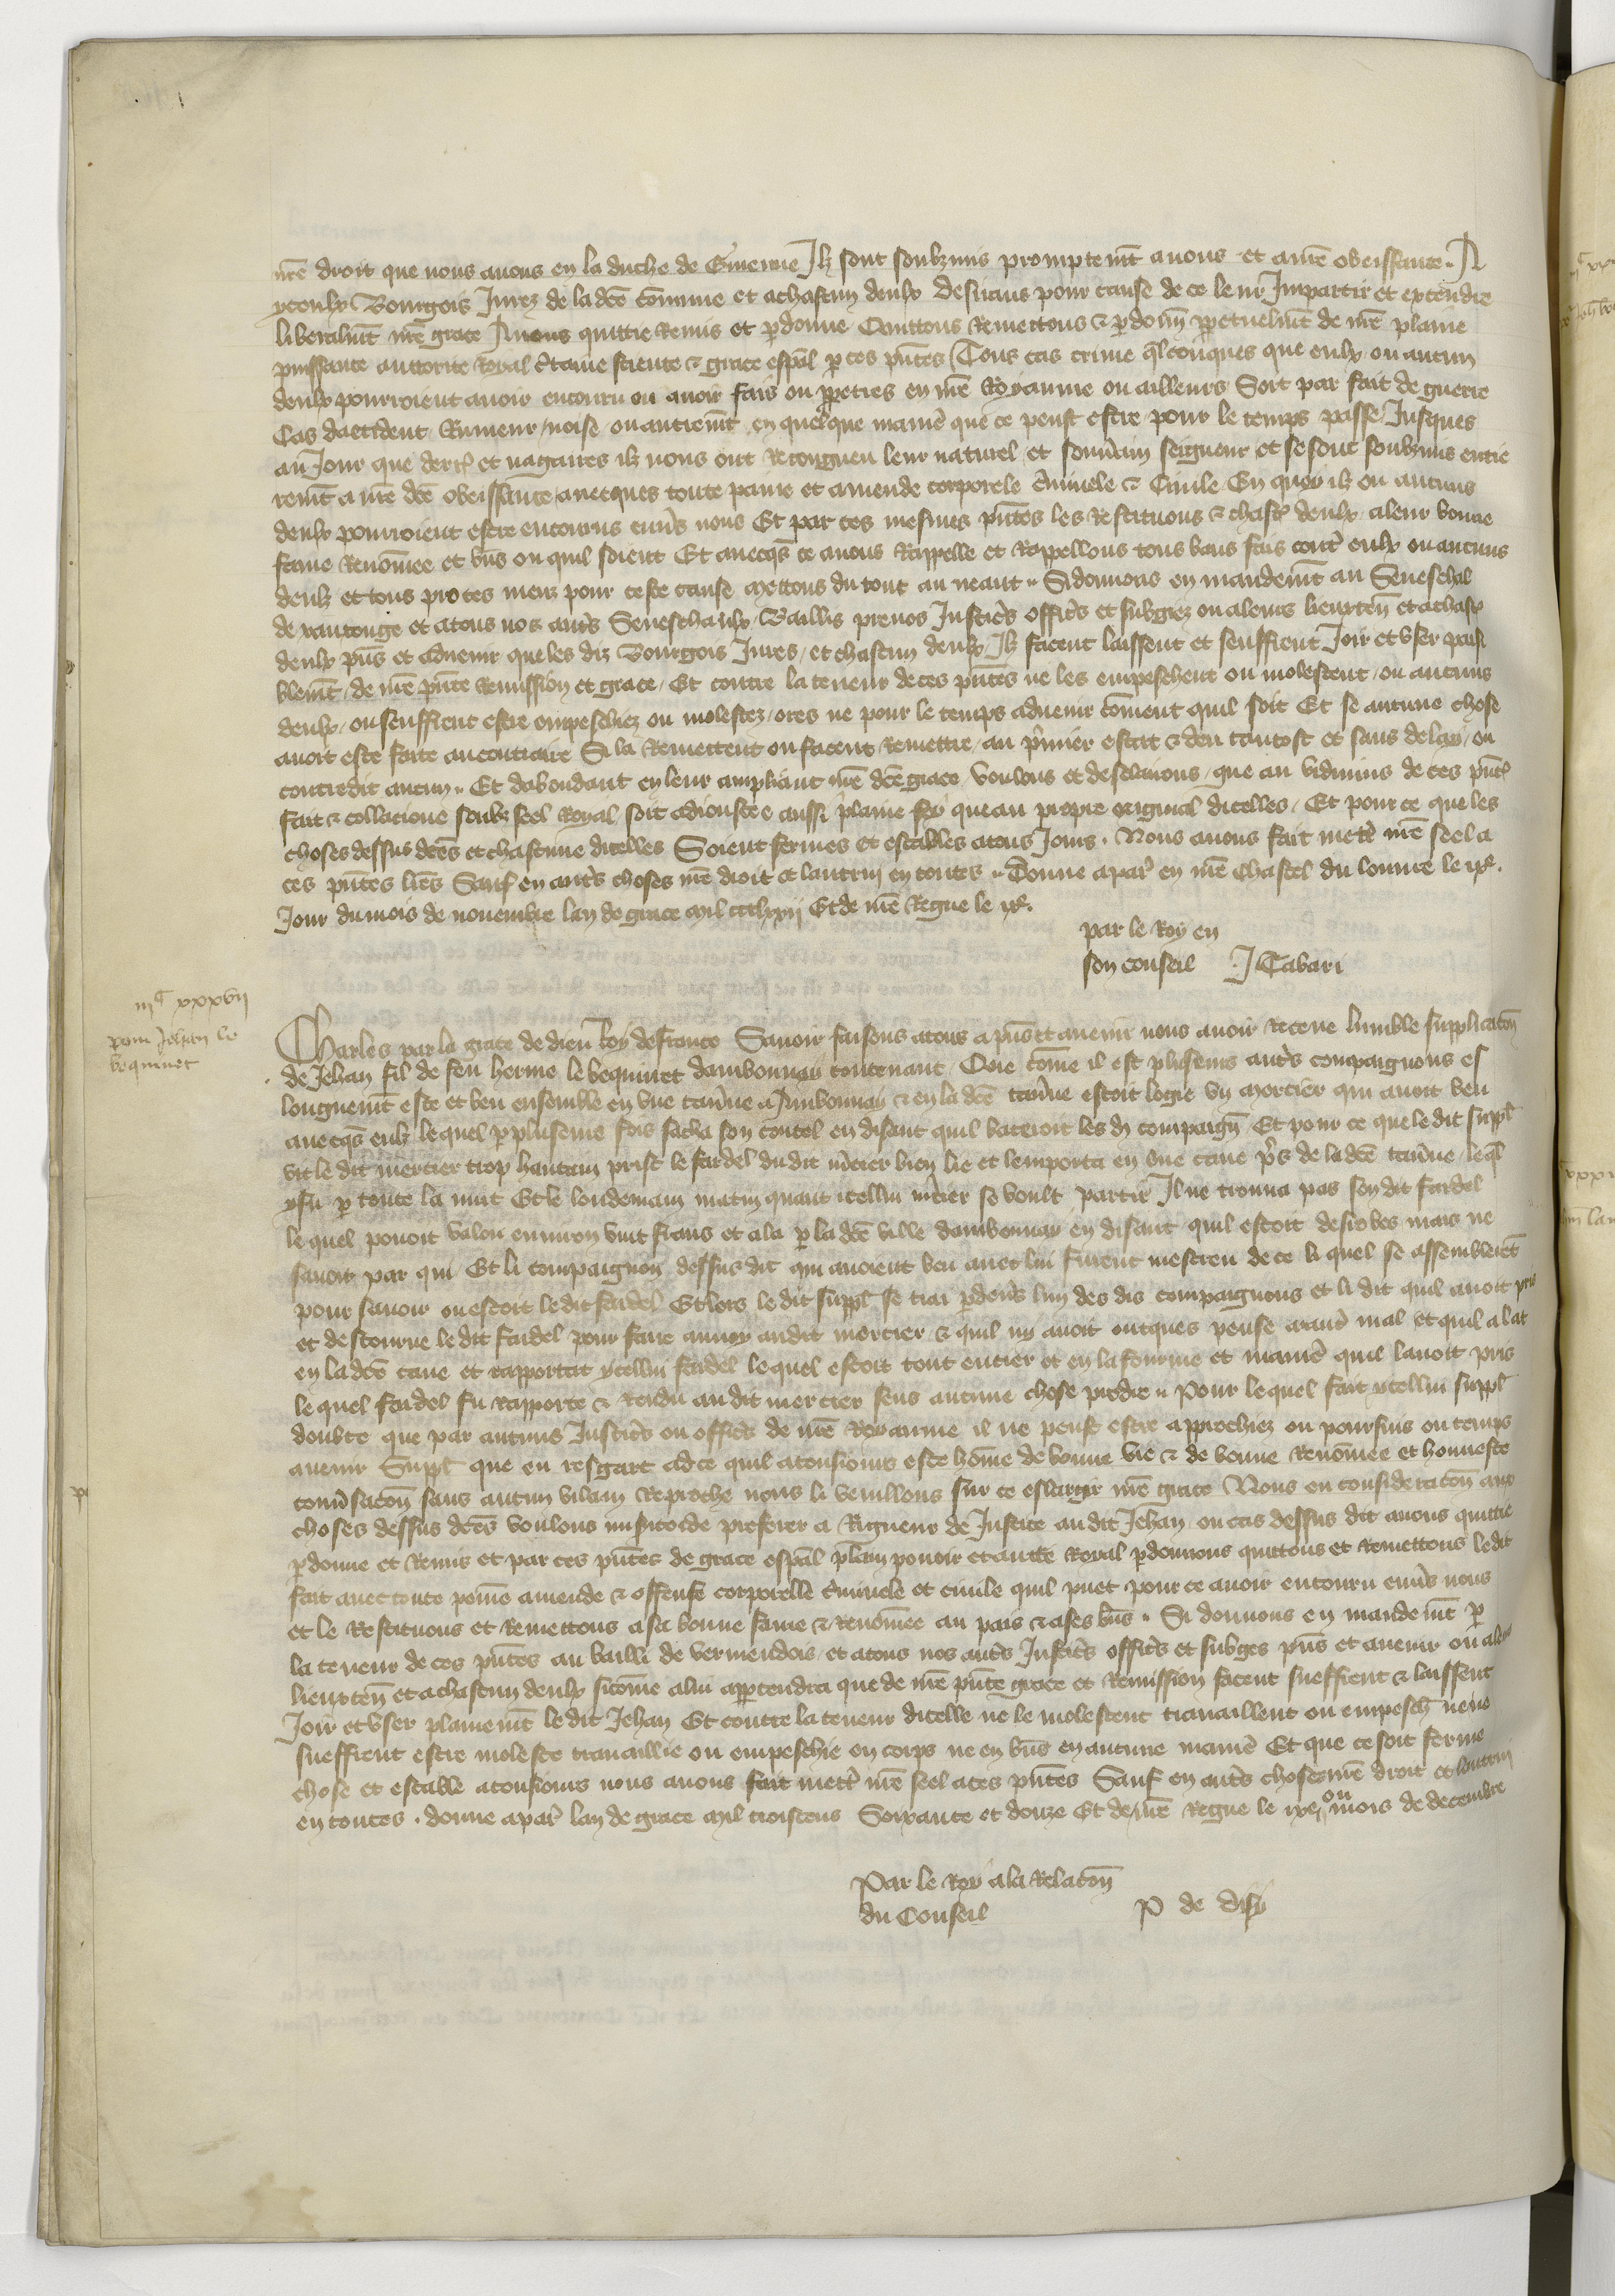 nr̄e droit que nous auons en la duche de Guienne Ilz sont soubzmis promptem̄t a nous et a nr̄e obeissance. A
yceulx Bourgois Jurez de la dc̄e com̄une et a chascun deulx desirans pour cause de ce leur Impartir et extendre
liberalm̄t nr̄e grace Auons quittie Remis et p̱donne Quittons Remettons & p̱don̄ p̱petuelm̄t de nr̄e plaine
puissance auttorite Royal c̄taine science & grace esp̄al p̱ ces pn̄tes Tous cas crime q̄lconques que eulx ou aucun
deulx pourroient auoir encouru ou auoir fais ou p̱petres en nr̄e Royaume ou ailleurs Soit par fait de guerre
Cas daccident Rumeur noise ou autrem̄t en quelque manie͛ que ce peust estre pour le temps passe Jusques
au Jour que derr̄ et nagaires ilz nous ont Recongneu leur naturel et souu̅ain seigneur et se sont soubzmis entie
rem̄t a nr̄e dc̄e obeissance auecques toute paine et amende corporele c̄minele & Ciuile En quoy ilz ou aucuns
deulx pourroient estre encourus enu̅s nous Et par ces mesmes pn̄tes les Restituons & chas͛ deulx a leur bonne
fame Renom̄ee et bn̄s ou quil soient Et auecq̄s ce auons Rappelle et Rappellons tous bans fais cont͛ eulx ou aucuns
deulz et tous proces menz pour ceste cause mettons du tout au neant. Si donnons en mandem̄t au Seneschal
de xantonge et a tous nos aut͛s Seneschaulx Baillis preuos Justic͛s offic͛s et subgiez ou a leurs lieuxten̄ et a chas͛
deulx pn̄s et aduenir que les diz Bourgois Jures et chascun deulx Ilz facent laissent et seuffrent Joir et user paisi
blem̄t de nr̄e pn̄te Remission et grace Et contre la teneur de ces pn̄tes ne les empeschent ou molestent ou aucuns
deulx ou seuffrent estre empeschiez ou molestez ores ne pour le temps aduenir com̄ent quil soit Et se aucune chose
auoit este faite au contraire Si la Remettent ou facent Remettre au p̄mier estat & deu tantost et sans delay ou
contredit aucun. Et dabondant en leur ampliant nr̄e dc̄e grace voulons et desclairons que au vidimus de ces pn̄t͛
fait & collacione soubz seel Royal soit adioustee aussi plaine foy que au propre original dicelles Et pour ce que les
choses dessus dc̄es et chascune dicelles Soient fermes et estables a tous Jours. Nous auons fait mett͛ nr̄e seel a
ces pn̄tes lr̄es Sauf en aut͛s choses nr̄e droit et lautrui en toutes. Donne a par͛ en nr̄e chastel du louure le ix͛.
Jour du mois de nouembre lan de grace mil ccclxxij Et de nr̄e Regne le ix͛.
par le Roy en
son conseil J Tabari
iijᶜ xxxvij
pour Jehan le
bequinet
Charles par la grace de dieu Roy de france Sauoir faisons a tous a pn̄s et auenir nous auoir Receue lumble supplicac̄on
de Jehan fil de feu herme le bequinet dambonnay contenant Que com̄e il est pluseurs aut͛s compaignons es
longuem̄t este et beu ensemble en vne tau̅ne a Ambonnay & en la dc̄e tau̅ne estoit logie vn mercier qui auoit beu
auecq̄s eulz lequel p̱ pluseurs fois sacha son coutel en disant quil bateroit les dis compaign̄ Et pour ce que le dit suppl̄
vit le dit mercier trop hautain prist le fardel du dit m̄cier bien lie et lemporta en vne caue p͛s de la dc̄e tau̅ne leq̄l
y fu p̱ toute la nuit Et le londemain matin quant icellui m̄cier se voult partir Il ne trouua pas son dit fardel
lequel pouoit valoir enuiron vint frans et ala p̱ la dc̄e ville dambonnay en disant quil estoit desrobes mais ne
sauoit par qui Et li compaignon dessus dit qui auoient beu auec lui furent mescreu de ce li quel se assembleret̄
pour sauoir ou estoit le dit fardel Et lors le dit suppl̄ se trai p̱deu̅s lun des dis compaignons et li dit quil auoit pris
et destourne le dit fardel pour faire annoy au dit mercier & quil ny auoit onques pense auant͛ mal et quil alat
en la dc̄e caue et rapportat ycellui fardel lequel estoit tout entier et en la fourme et manie͛ quil lauoit pris
lequel fardel fu Rapporte & Rendu au dit mercier sens aucune chose p̱dre. Pour lequel fait ycellui suppl̄
doubte que par aucuns Justic͛s ou offic͛s de nr̄e Royaume il ne peust estre approchiez ou poursuis ou temps
auenir Suppl̄ que en resgart ad ce quil a tousiours este hom̄e de bonne vie & de bonne Renom̄ee et honneste
conu̅sac̄on sans aucun vilain Reproche nous li veuillons sur ce eslargir nr̄e grace Nous en considerac̄on aus
choses dessus dc̄es voulons mis̄icorde preferer a Rigueur de Justice au dit Jehan ou cas dessus dit auons quittie
p̱donne et Remis et par ces pn̄tes de grace esp̄al plain pouoir et auctte͛ Royal p̱donnons quittons et Remettons le dit
fait auec toute peine amende & offense corporelle c̄minele et ciuile quil puet pour ce auoir encouru enu̅s nous
et le Restituons et Remettons a sa bonne fame & Renom̄ee au pais & a ses bn̄s. Si donnons en mandem̄t p̱
la teneur de ces pn̄tes au bailli de vermendois et a tous nos aut͛s Justic͛s offic͛s et subges pn̄s et auenir ou a leurs
lieuxten̄ et a chascun deulx sicom̄e a lui app̱tendra que de nr̄e pn̄te grace et Remission facent sueffrent & laissent
Joir et user plainem̄t le dit Jehan Et contre la teneur dicelle ne le molestent trauaillent ou empesch̄ ne ne
sueffrent estre moleste trauaillie ou empeschie en corps ne en bn̄s en aucune manie͛ Et que ce soit ferme
chose et estable a tousiours nous auons fait mett͛ nr̄e seel a ces pn̄tes Sauf en aut͛s choses nr̄e droit et lautrui
en toutes. donne a par͛ lan de grace mil troiscens Soixante et douze Et de nr̄e Regne le ixe ou mois de decembre
Par le Roy a la Relac̄on
du Conseil P de disy